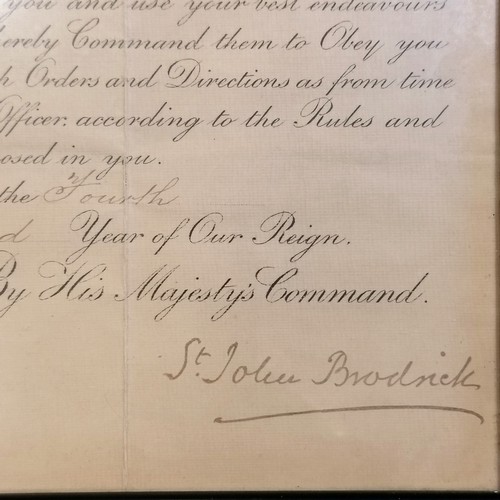 you and use your best endeavours
hereby Command them to Obey you
h Orders and Directions as from time
Officer, according to the Rules and
osed in you.
the Fourth
d Year of Our Reign.
By His Majesty's Command.
St. John Brodrick